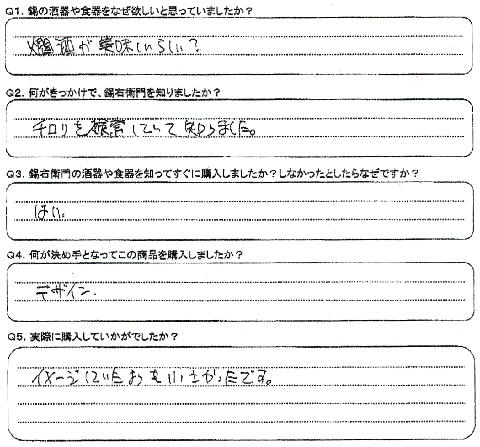 Q1. 錫の酒器や食器をなぜ欲しいと思っていましたか?
燗酒が美味しいらしい?
Q2. 何がきっかけで、錫右衛門を知りましたか?
チロリを検索していて知りました。
Q3. 錫右衛門の酒器や食器を知ってすぐに購入しましたか?しなかったとしたらなぜですか?
はい。
Q4. 何が決め手となってこの商品を購入しましたか?
デザイン.
Q5. 実際に購入していかがでしたか?
イメージしていた
です。